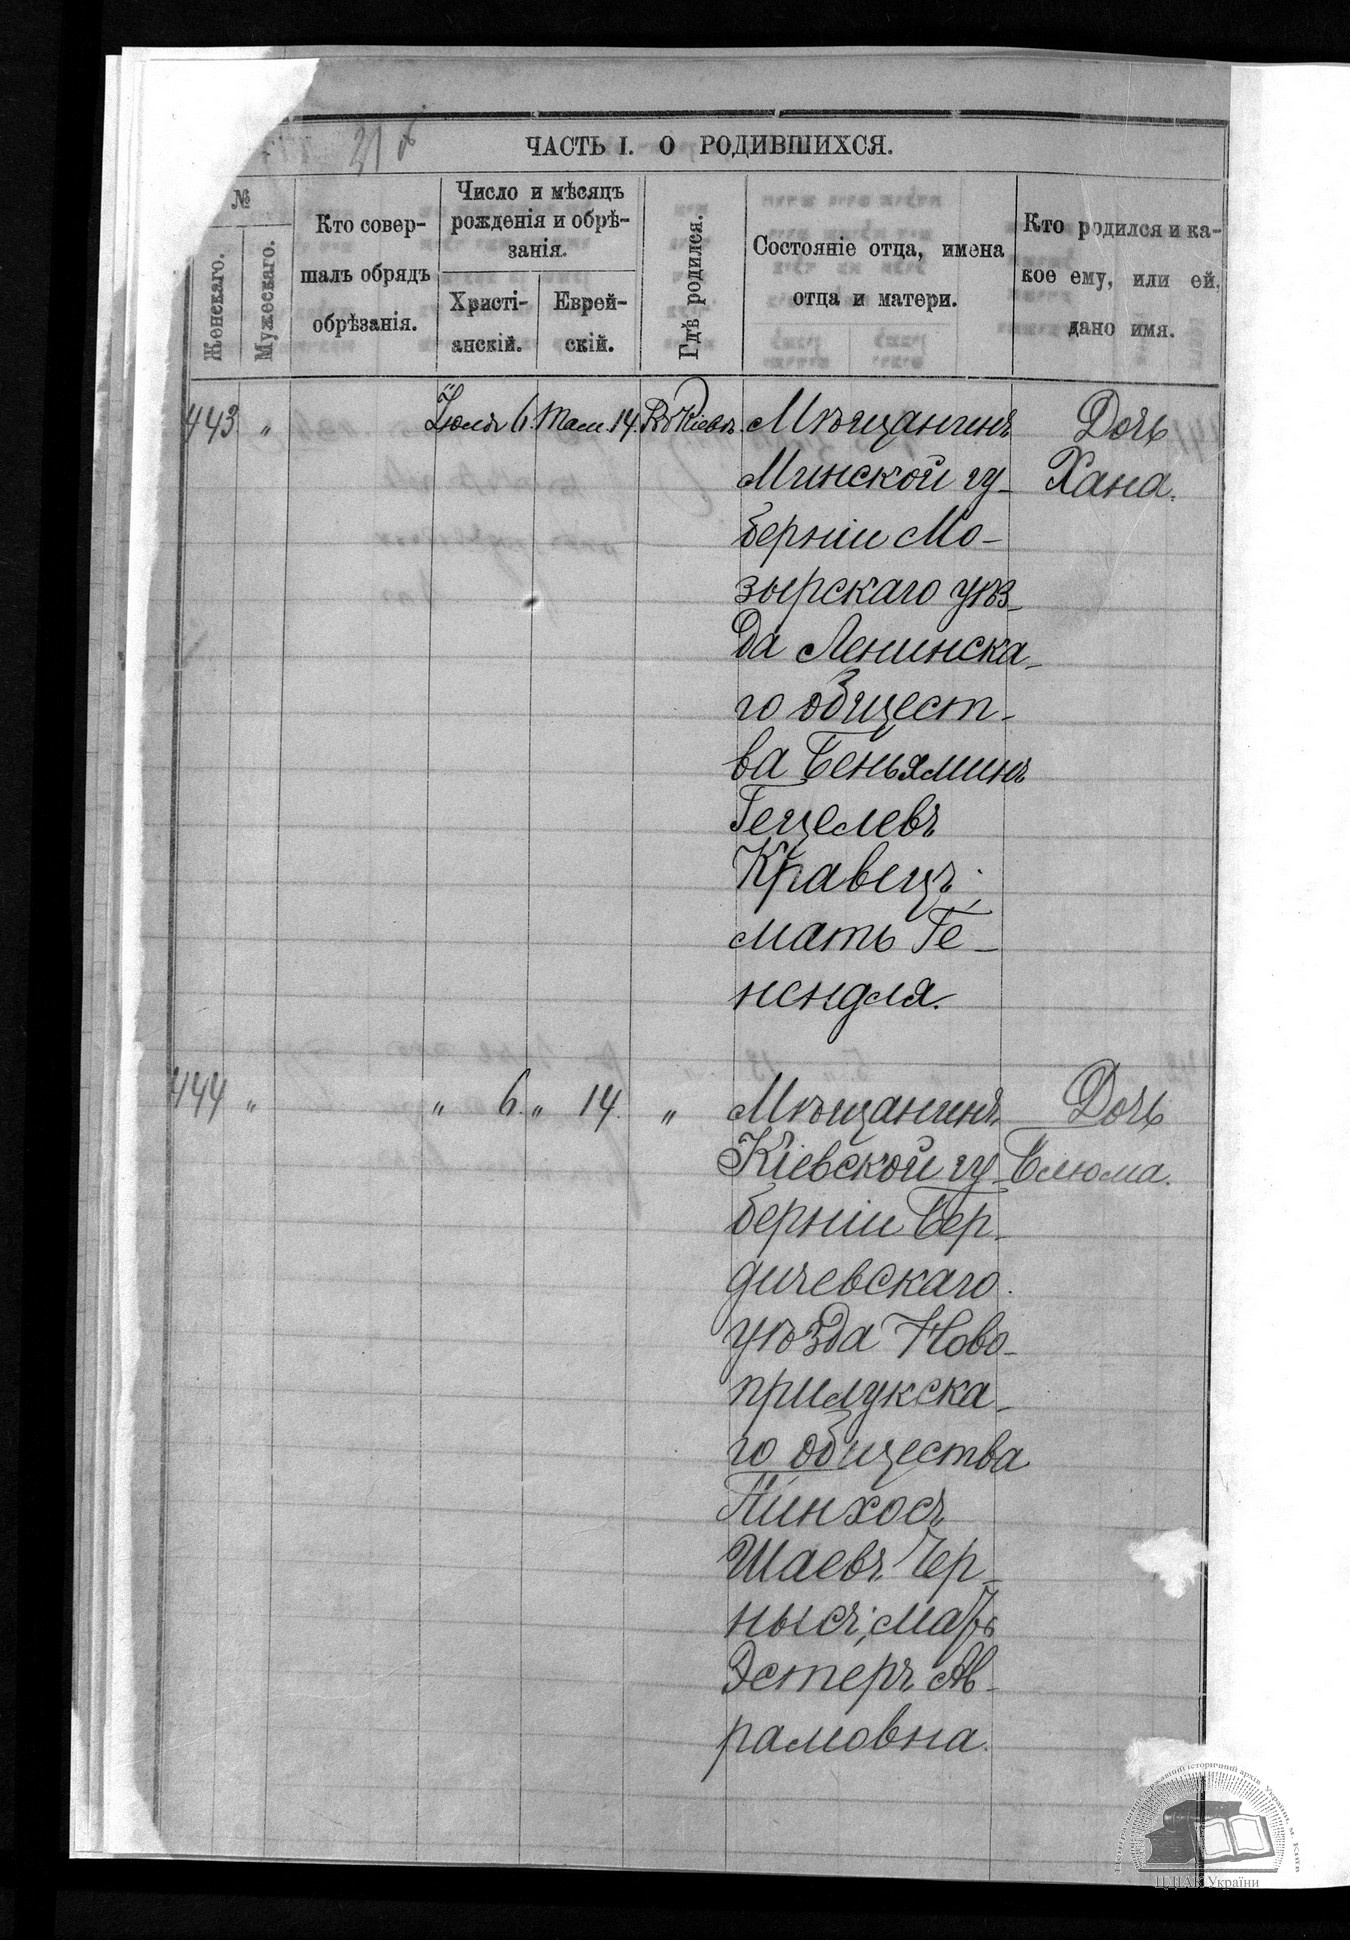 ЧАСТЬ I. О РОДИВШИХСЯ.
№
Женскаго.
Мужескаго.
Кто совер-
шалъ обрядъ
обрѣзанія.
Число и мѣсяцъ
рожденія и обрѣ-
занія.
Христі-
анскій.
Еврей-
скій.
Гдѣ родился.
Состояніе отца, имена
отца и матери.
Кто родился и ка-
кое ему, или ей,
дано имя.
443 " Іюля 6. Там. 14. Въ Кіевѣ. Мѣщанинъ Дочь
Минской гу- Хана.
берніи Мо-
зырскаго уѣз-
да Ленинска-
го общест-
ва Беньяминъ
Гецелевъ
Кравецъ;
мать Ге-
нендля.
444 " " 6. " 14. " Мѣщанинъ Дочь
Кіевской гу- Блюма.
берніи Бер-
дичевскаго
уѣзда Ново-
прилукска-
го общества
Пинхосъ
Шаевъ Чер-
нысъ, мать
Эстеръ Ав-
рамовна.
Центральний державний історичний архів України, м. Київ
ЦДІАК України